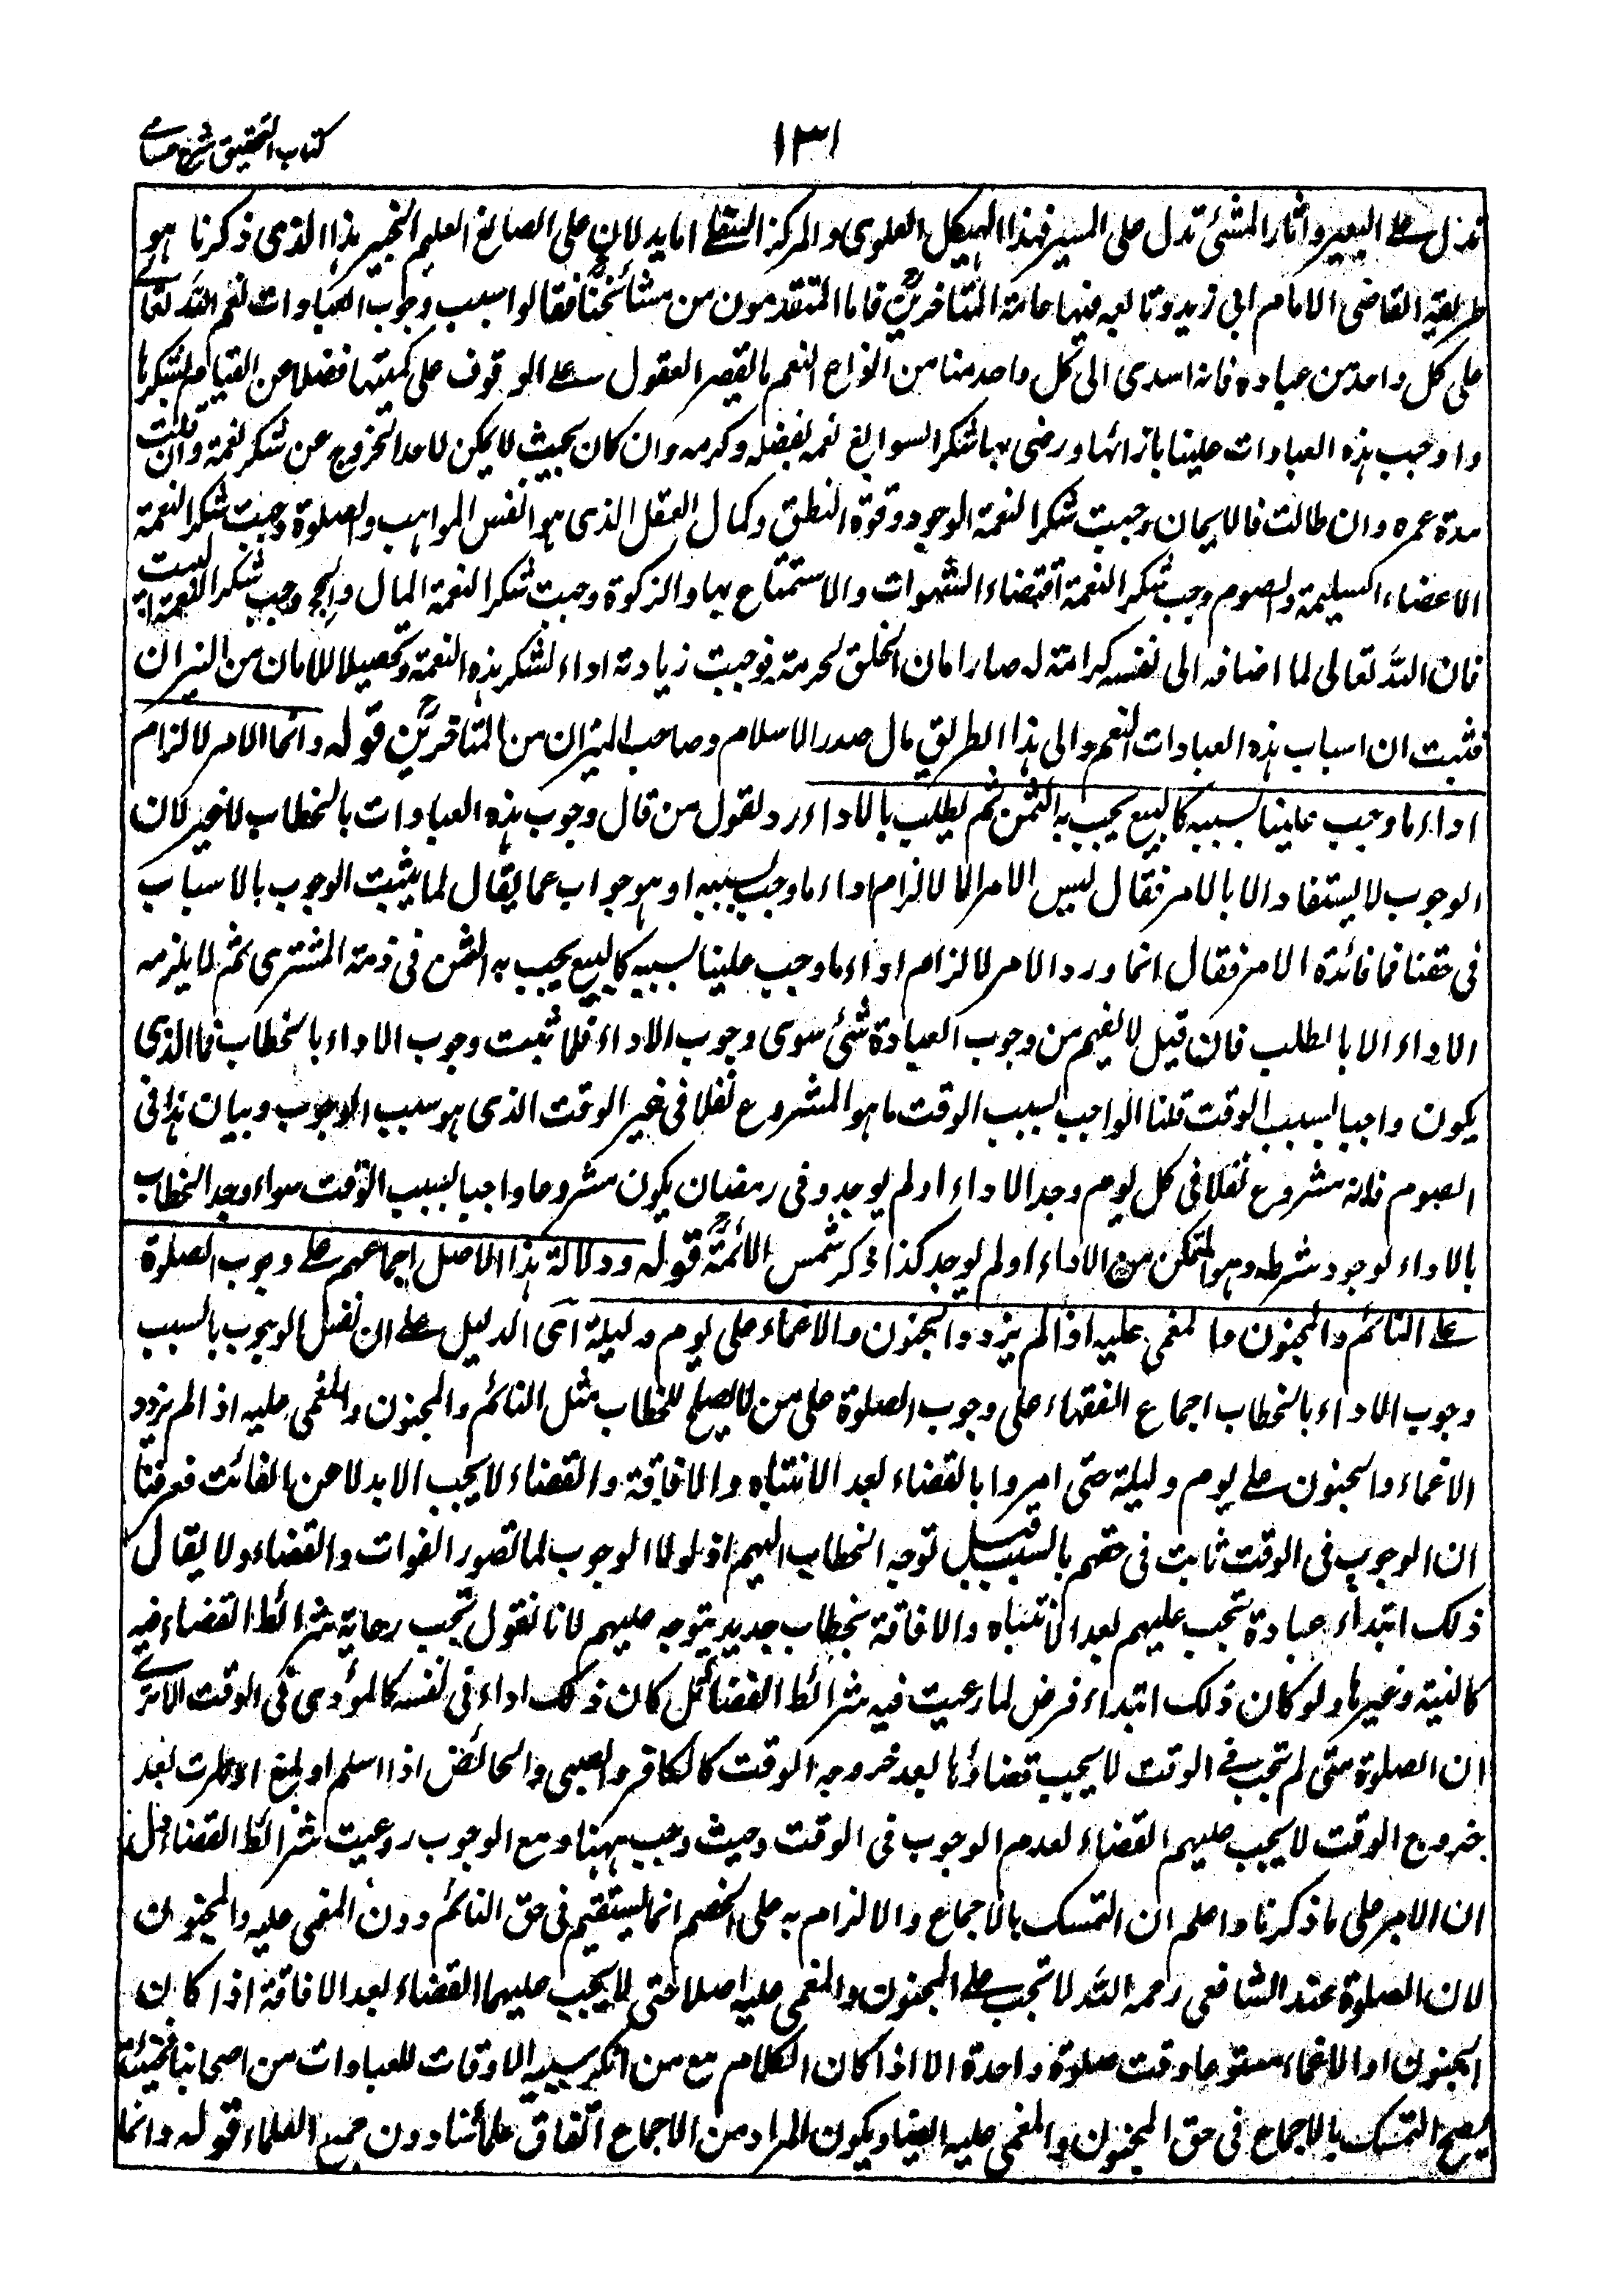 ۱۳۱
كتاب التحقيق شرح حسامي
تدل على البعير واثار المشئ تدل على المسير فهذا الهيكل العلوى والمركز السفلى اما يدلان على الصانع العليم الخبير هذا الذى ذكرنا هو
طريقة القاضى الامام ابى زيد وتابعه فيها عامة المتاخرينؒ فاما المتقدمون من مشائخناؒ فقالوا سبب وجوب العبادات نعم الله تعالى
على كل واحد من عباده فانه اسدى الى كل واحد منا من انواع النعم ما يقصر العقول على الوقوف على كميتها فضلا عن القيام بشكرها
واوجب هذه العبادات علينا بازائها ورضى بها شكرا لسوابغ نعمه بفضله وكرمه وان كان بحيث لا يمكن لاحد الخروج عن شكر نعمة وان قلت
مدة عمره وان طالت فالايمان وجبت شكرا لنعمة الوجود وقوة النطق وكمال العقل الذى هو انفس المواهب والصلوة وجبت شكرا لنعمة
الاعضاء السليمة والصوم وجب شكرا لنعمة اقتضاء الشهوات والاستمتاع بها والزكوة وجبت شكرا لنعمة المال والحج وجب شكرا لنعمة البيت
فان الله تعالى لما اضافه الى نفسه كرامة له صار امان الخلق لحرمته فوجبت زيادته اداء لشكر هذه النعمة وتحصيلا للامان من النيران
فثبت ان اسباب هذه العبادات النعم والى هذا الطريق مال صدر الاسلام وصاحب الميزان من المتاخرينؒ قوله وانما الامر لالزام
اداء ما وجب علينا بسببه كالبيع يجب به الثمن ثم يطلب بالاداء رد لقول من قال وجوب هذه العبادات بالخطاب لا غير لان
الوجوب لا يستفاد الا بالامر فقال ليس الامر الا لالزام اداء ما وجب بسببه او هو جواب عما يقال لما يثبت الوجوب بالاسباب
فى حقنا فما فائدة الامر فقال انما ورد الامر لالزام اداء ما وجب علينا بسببه كالبيع يجب به الثمن فى ذمة المشترى ثم لا يلزمه
الاداء الا بالطلب فان قيل لا يفهم من وجوب العبادة شئ سوى وجوب الاداء فلا ثبت وجوب الاداء بالخطاب فما الذى
يكون واجبا بسبب الوقت قلنا الواجب بسبب الوقت ما هو المشروع نفلا فى غير الوقت الذى هو سبب الوجوب وبيان هذا فى
الصوم فانه مشروع نفلا فى كل يوم وجد الاداء او لم يوجد وفى رمضان يكون مشروعا واجبا بسبب الوقت سواء وجد الخطاب
بالاداء لوجود شرطه وهو التمكن من الاداء او لم يوجد كذا ذكر شمس الائمةؒ قوله ودلالة هذا الاصل اجماعهم على وجوب الصلوة
على النائم والمجنون والمغمى عليه اذا لم يزدد الجنون والاغماء على يوم وليلة اى الدليل على ان نفس الوجوب بالسبب
وجوب الاداء بالخطاب اجماع الفقهاء على وجوب الصلوة على من لا يصلح للخطاب مثل النائم والمجنون والمغمى عليه اذا لم يزدد
الاغماء والجنون على يوم وليلة حتى امروا بالقضاء بعد الانتباه والافاقة والقضاء لا يجب الا بدلا عن الفائت فعرفنا
ان الوجوب فى الوقت ثابت فى حقهم بالسبب قبل توجه الخطاب اليهم اذ لولا الوجوب لما تصور الفوات والقضاء ولا يقال
ذلك ابتداء عبادة تجب عليهم بعد الانتباه والافاقة بخطاب جديد يتوجه عليهم لانا نقول تجب رعاية شرائط القضاء فيه
كالنية وغيرها ولو كان ذلك ابتداء فرض لما رعيت فيه شرائط القضاء بل كان ذلك اداء فى نفسه كالمؤدى فى الوقت الا ترى
ان الصلوة متى لم تجب فى الوقت لا يجب قضاؤها بعد خروجه الوقت كالكافر والصبى والحائض اذا اسلم او بلغ او طهرت بعد
خروج الوقت لا يجب عليهم القضاء لعدم الوجوب فى الوقت وحيث وجب ههنا ومع الوجوب روعيت شرائط القضاء دل
ان الامر على ما ذكرنا واعلم ان التمسك بالاجماع والالزام به على الخصم انما يستقيم فى حق النائم دون المغمى عليه والمجنون
لان الصلوة عند الشافعى رحمه الله لا تجب على المجنون والمغمى عليه اصلا حتى لا يجب عليهما القضاء بعد الافاقة اذا كان
الجنون او الاغماء مستوعبا وقت صلوة واحدة الا اذا كان الكلام مع من انكر سببية الاوقات للعبادات من اصحابنا فحينئذ
يصح التمسك بالاجماع فى حق المجنون والمغمى عليه ايضا ويكون المراد من الاجماع اتفاق علمائنا دون جميع العلماء قوله وانما